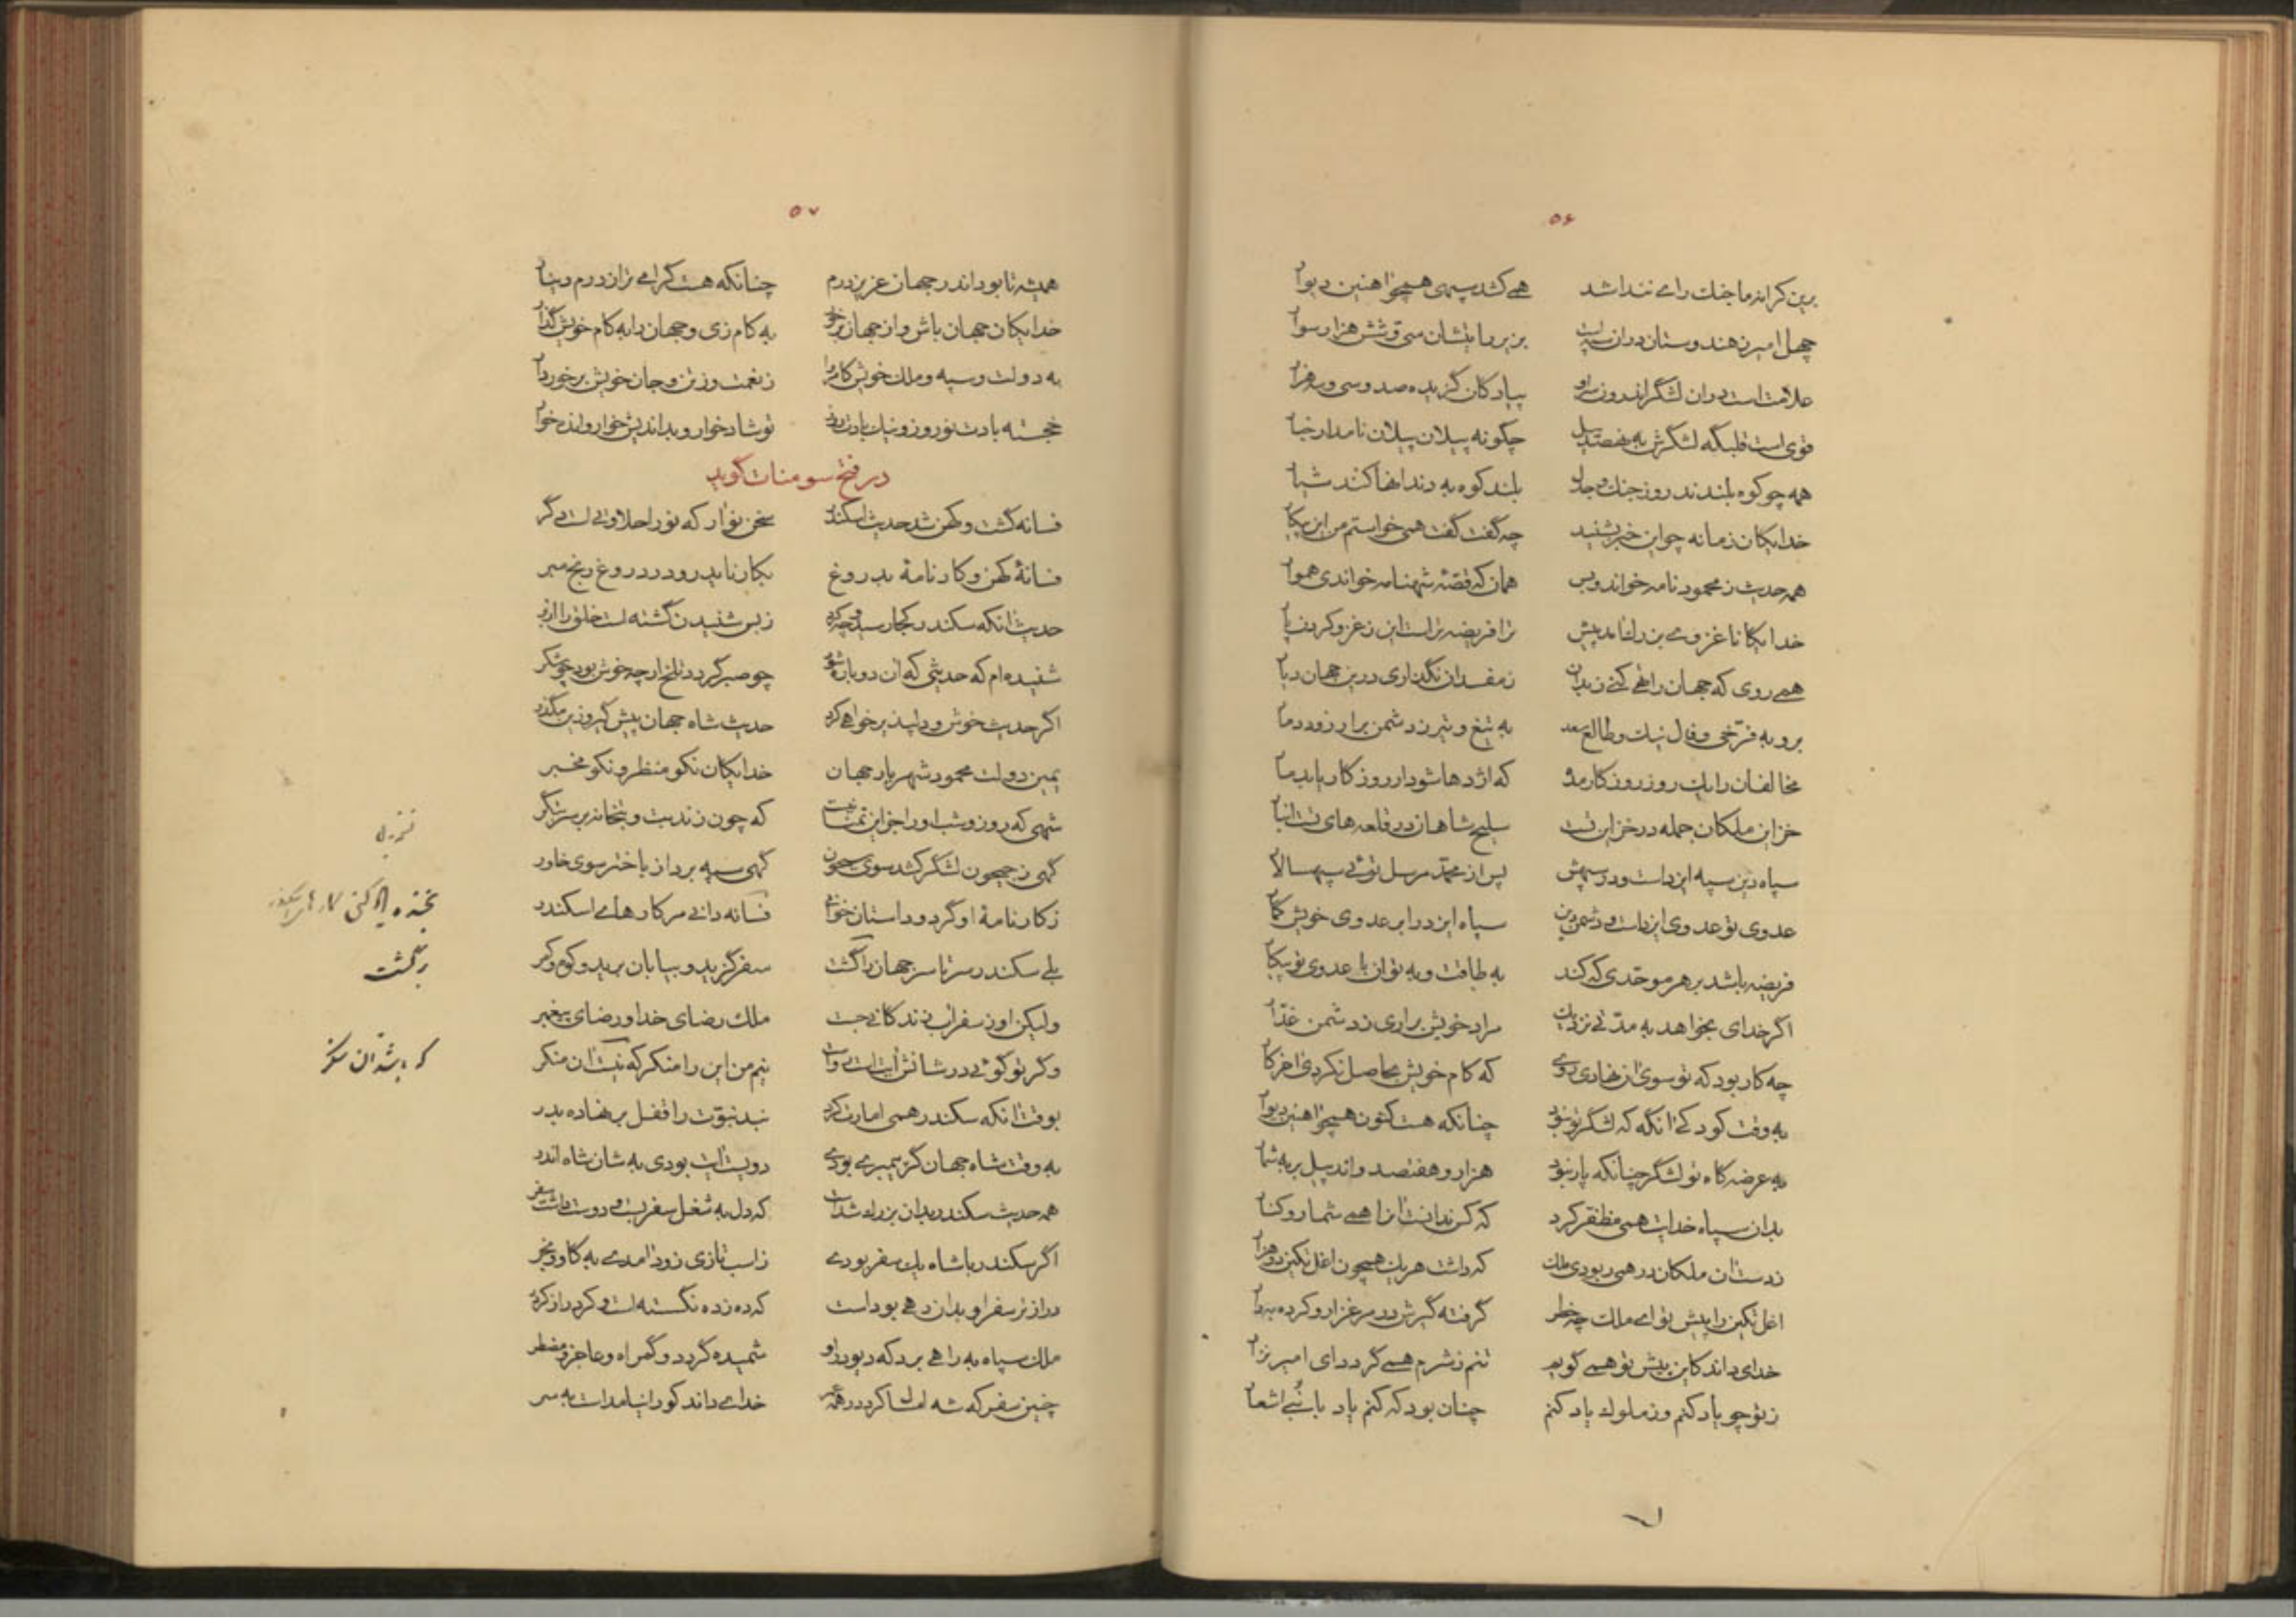 ۵۶
برین کرانه ما جنک راے نندا شد همے کشد سپهی همچو اهنین دیوا
چهل امیر ز هندوستان دران سپه است بزیر رایتشان سی و شش هزار سوا
علامت است دران لشگر اندرون پیادکان کزیده صد و سی و سه هزا
قوی است قلبگه لشگرش به هفتصد پیل چگونه پیلان پیلان نامدار خیا
همه چو کوه بلندند روز جنك و جدل بلند کوه به دندانها کنند شیا
خدایکان زمانه چو این خبر بشنید چه گفت گفت همی خواستم من این پیکا
همه حدیث ز محمود نامه خواند و بس همان که قصّهٔ شهنامه خواندی هموا
خدایکانا غزوے بزرك امد پیش ترا فریضه تر است این ز غزو کردن پا
همے روی که جهان را تهے کنے ز بدان ز مفسدان نگذاری درین جهان دیا
برو به فرّخی و فال نیك و طالع سعد به تیغ و تیر ز دشمن برار زود دما
مخالفان را یك روز روزکار مده که اژدها شود ار روزکار یابد ما
خزاین ملکان جمله در خزاین تست سلیح شاهان در قلعه های تست انبا
سپاه دین سپه ایزدست و در سپهش پس از محمّد مرسل توئے سپهسالا
عدوی تو عدوی ایزدست و دشمن دین سپاه ایزد را بر عدوی خویش کما
فریضه باشد بر هر موحّدی که کند به طاقت و به توان با عدوی تو پیکا
اگر خدای بخواهد به مدّتے نزدیك مراد خویش براری ز دشمن غدّا
چه کار بود که تو سوی ان نهادی روے که کام خویش بحاصل نکردی اخرکا
به وقت کودکے انگه که لشگر تو نبود چنانکه هست کنون همچو اهنین دیوا
به عرضه کاه تو لشگر چنانکه پار نبود هزار و هفتصد و اند پیل بر به شما
بدان سپاه خدایت همی مظفّر کرد که کس ندانست انرا همے شمار و کنا
ز دست ان ملکان در همی ربودی ملك که داشت هر یك همچون اغل تکین دو هزا
اغل تکین را پیش تو اے ملك چه خطر گرفته گیرش در مرغزار و کرده به دا
خدای داند کاین پیش تو همے گویم تنم ز شرم همے گردد ای امیر نزا
ز تو چو یاد کنم وز ملوك یاد کنم چنان بود که کنم یاد با نُبے اشعا
۵۷
همیشه تا بود اندر جهان عزیز درم چنانکه هست گرامے تر از درم دینا
خدایکان جهان باش وز جهان برخو به کام زی و جهان را به کام خویش گذا
به دولت و سپه و ملك خویش کامروا ز نعمت و ز تن و جان خویش برخوردا
خجسته بادت نوروز و نیك بادت روز تو شادخوار و بداندیش خوار وانده خوا
در فتح سومنات گوید
فسانه گشت و کهن شد حدیث اسکندر سخن نو ار که نو را حلاوتے است دگر
فسانهٔ کهن و کارنامهٔ بدروغ بکار ناید رو در دروغ رنج مبر
حدیث انکه سکندر کجا رسید و چه کرد ز بس شنیدن گشته است خلق را ازبر
شنیده ام که حدیثی که ان دوباره شود چو صبر گردد تلخ ار چه خوش بود چو شکر
اگر حدیث خوش و دلپذیر خواهے کرد حدیث شاه جهان پیش گیر و زین مگذر
یمین دولت محمود شهریار جهان خدایکان نکو منظر و نکو مخبر
شهی که روز و شب او را جز این تمنّا نیست که چون زند بت و بتخانه بر سر بتگر
گهی ز جیحون لشگر کشد سوی سیحون گهی سپه برد از باختر سوی خاور
ز کارنامهٔ او گر دو داستان خوانی فسانه دانے مر کارهاے اسکندر
بلے سکندر سرتاسر جهان را گشت سفر گزید و بیابان برید و کوه و کمر
ولیکن او ز سفر آب زندگانے جست ملك رضای خدا و رضای پیغمبر
وگر تو گوئے در شانش آیت است رواست نیم من این را منکر که نیست آن منکر
بوقت آنکه سکندر همی امارت کرد نبد نبوّت را قفل بر نهاده بدر
به وقت شاه جهان گر پیمبرے بودے دویست ایت بودی به شان شاه اندر
همه حدیث سکندر بدان بزرك شداست که دل به شغل سفر بست و دوست داشت سفر
اگر سکندر با شاه یك سفر بودے ز اسب تازی زود آمدے به کاو و به خر
درازتر سفر او بدان رهے بود است که ده ز ده نگسسته است و کردر از کردر
ملك سپاه به راهے برد که دیو درو شمیده گردد و گمراه و عاجز و مضطر
چنین سفر که شه امسال کرد در همه عمر خداے داند کو را نیامد است به سر